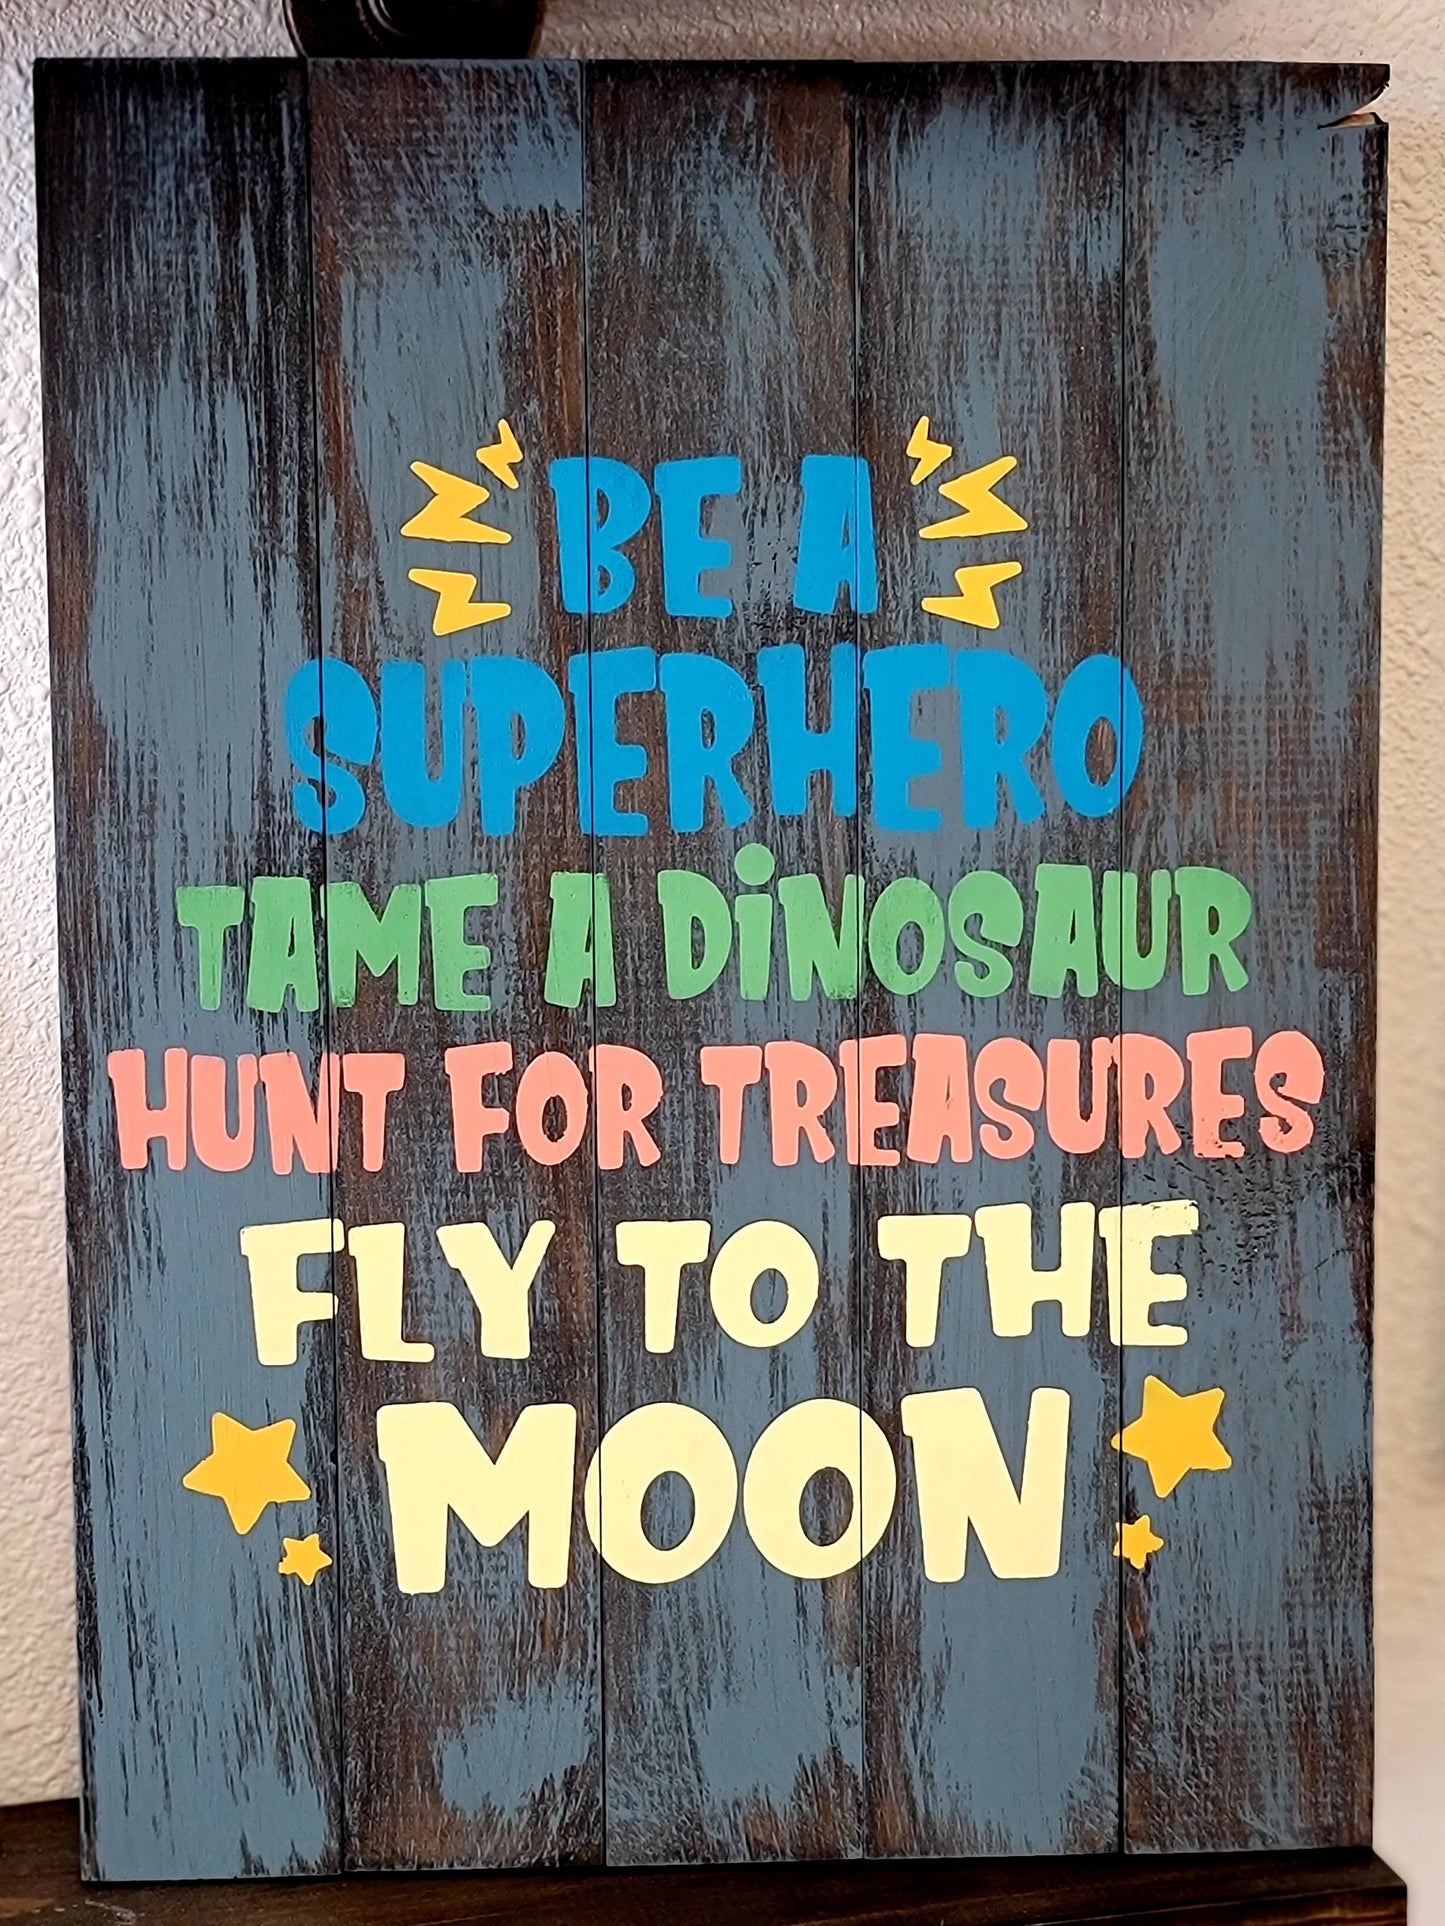 BE A
SUPERHERO
TAME A DiNOSAUR
HUNT FOR TREASURES
FLY TO THE
MOON